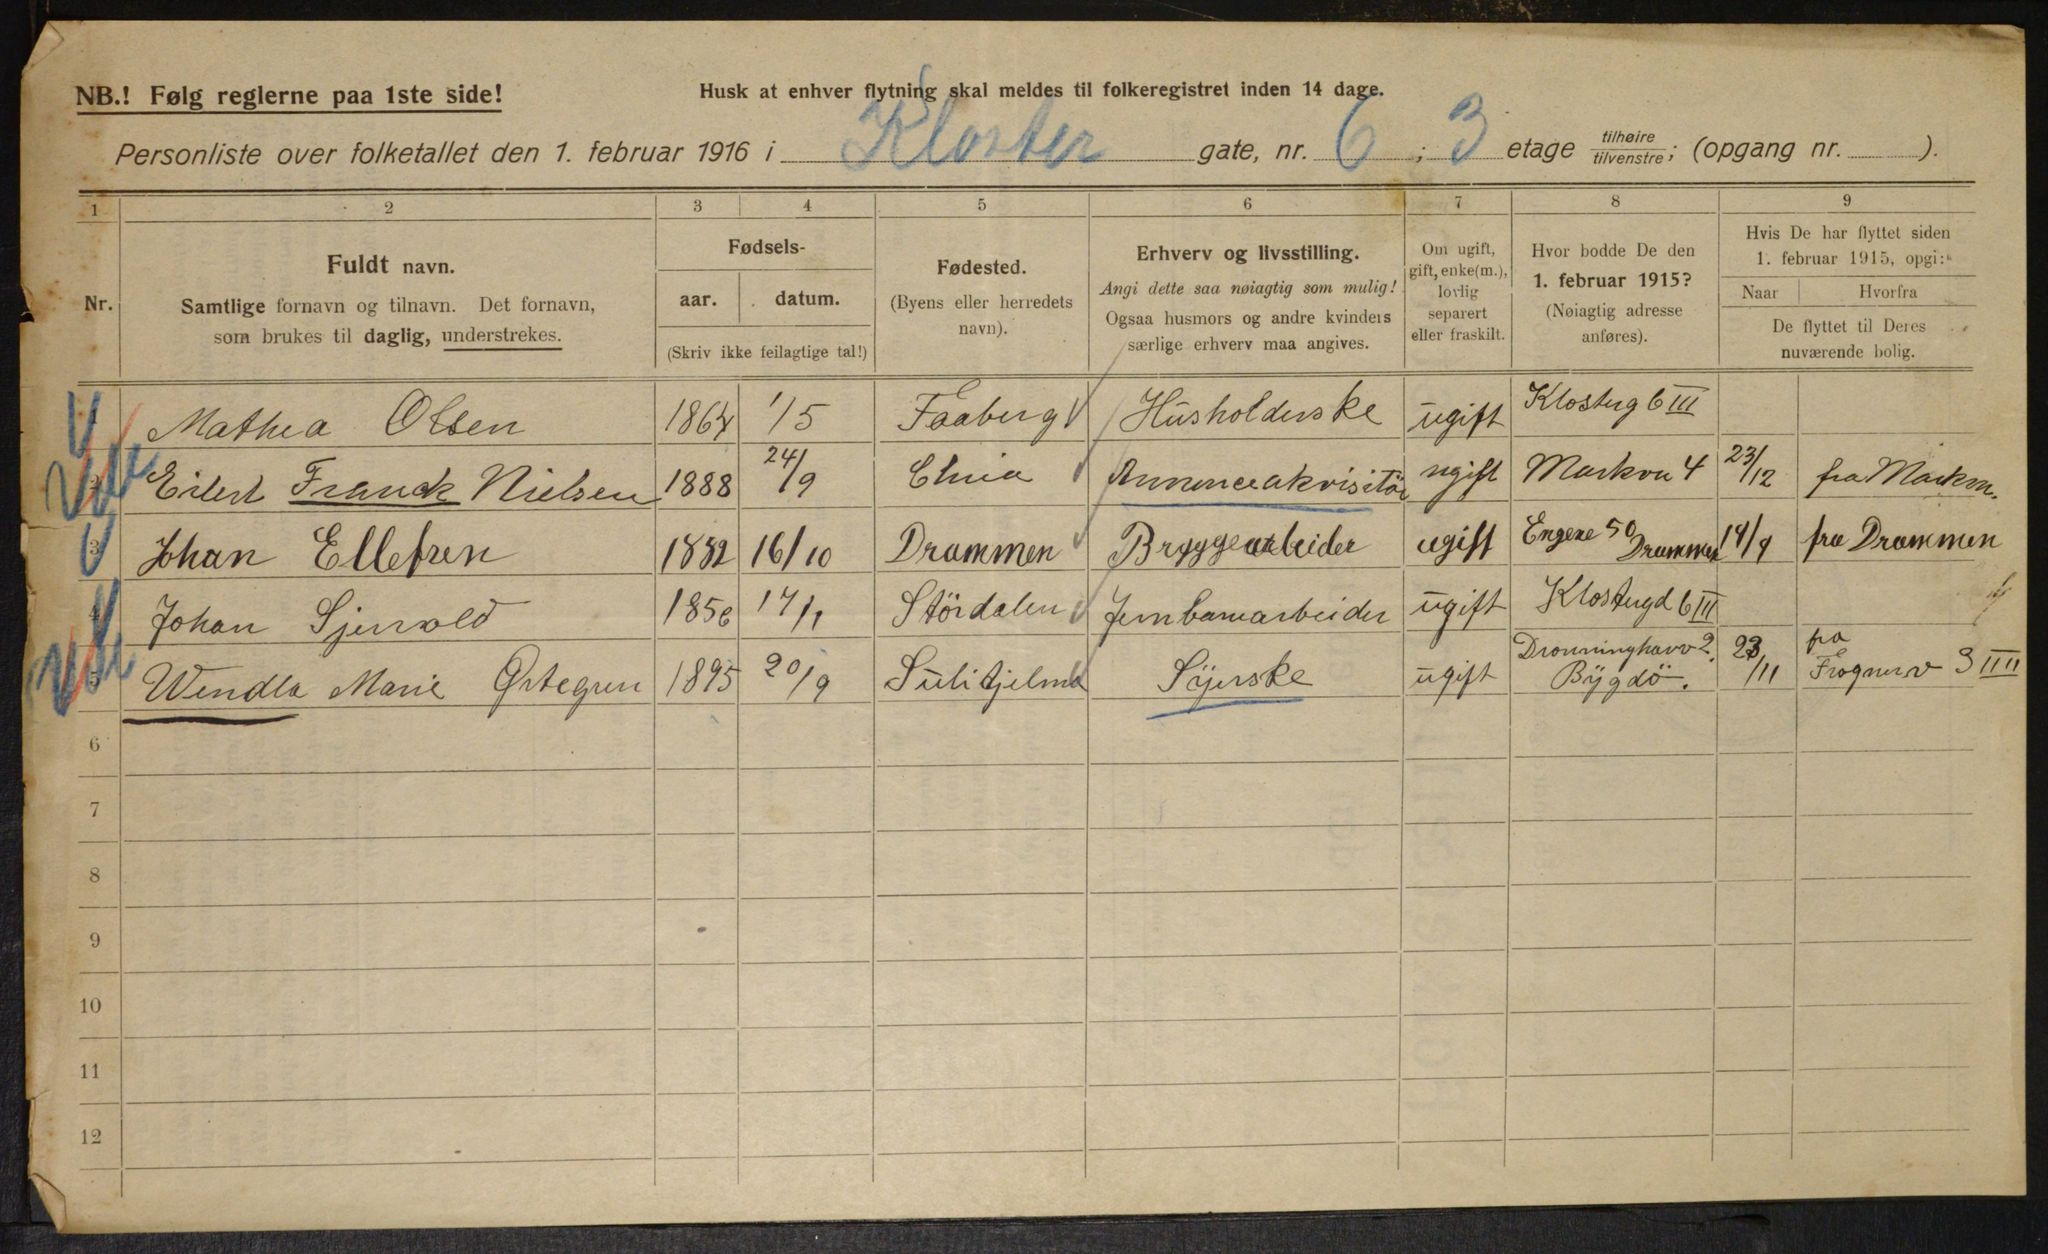 NB.! Følg reglerne paa 1ste side!
Husk at enhver flytning skal meldes til folkeregistret inden 14 dage.
Personliste over folketallet den 1. februar 1916 i Kloster gate, nr. 6 ; 3 etage tilhøire / tilvenstre ; (opgang nr. ).
1 2 3 4 5 6 7 8 9
Nr.
Fuldt navn.
Samtlige fornavn og tilnavn. Det fornavn,
som brukes til daglig, understrekes.
Fødsels-
aar. datum.
(Skriv ikke feilagtige tal!)
Fødested.
(Byens eller herredets
navn).
Erhverv og livsstilling.
Angi dette saa nøiagtig som mulig!
Ogsaa husmors og andre kvinders
særlige erhverv maa angives.
Om ugift,
gift, enke(m.),
lovlig
separert
eller fraskilt.
Hvor bodde De den
1. februar 1915?
(Nøiagtig adresse
anføres).
Hvis De har flyttet siden
1. februar 1915, opgi:
Naar Hvorfra
De flyttet til Deres
nuværende bolig.
Mathea Olsen 1864 1/5 Faaberg Husholderske ugift Klosterg 6 III
2 Eilert Franck Nielsen 1888 24/9 Chria Annonceakvisitör ugift Markvn 4 23/12 fra Markvn.
3 Johan Ellefsen 1852 16/10 Drammen Bryggearbeider ugift Engene 50 Drammen 14/9 fra Drammen
4 Johan Sjervold 1856 17/1 Stördalen Jernbanearbeider ugift Klostergd 6 III
5 Wendla Marie Østegren 1895 20/9 Sulitjelma Syerske ugift Dronninghavv 2. Bygdö. 23/11 fra Frognerv 3 IIII
6
7
8
9
10
11
12